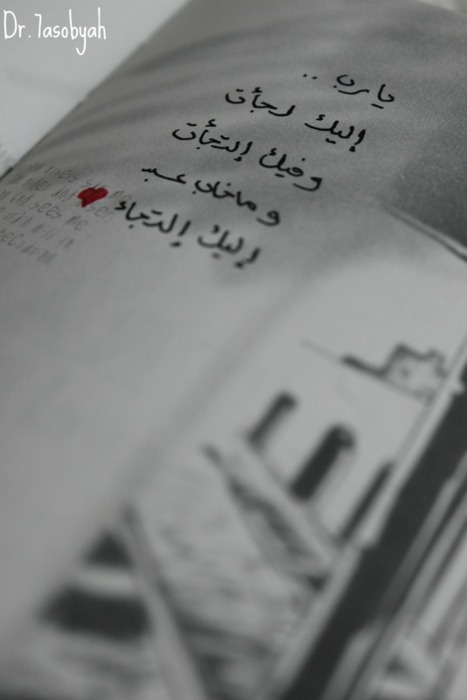 Dr.7asobyah
يا رب ..
إليك لجأت
وفيك إلتجأت
وماخاب عبد
إليك إلتجاء